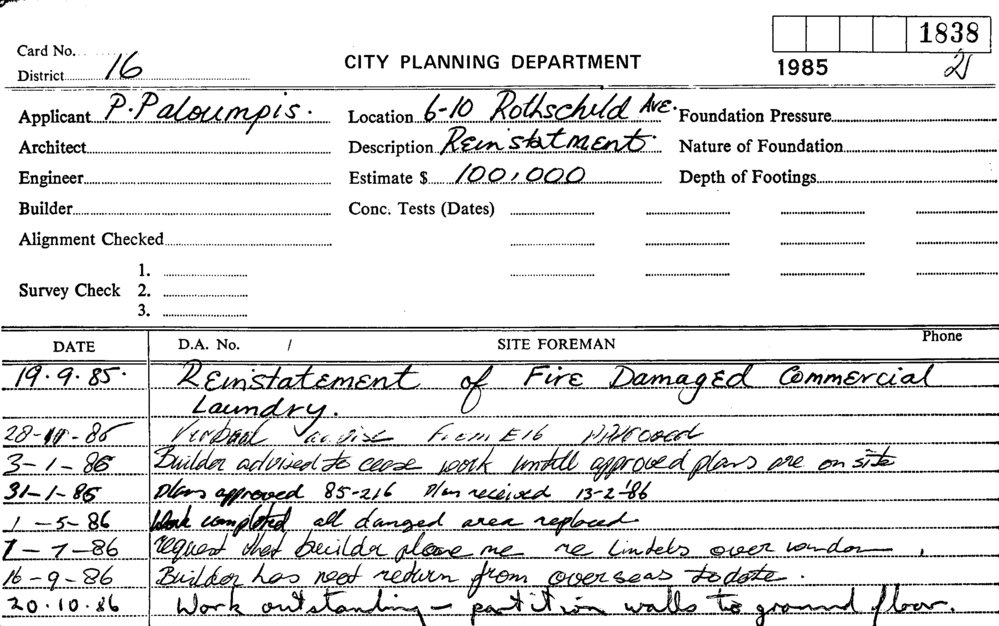 1838
Card No.
District 16
CITY PLANNING DEPARTMENT
1985
21
Applicant P. Paloumpis.
Location 6-10 Rothschild Ave.
Foundation Pressure
Architect
Description Reinstatment.
Nature of Foundation
Engineer
Estimate $ 100,000
Depth of Footings
Builder
Conc. Tests (Dates)
Alignment Checked
Survey Check
1.
2.
3.
DATE D.A. No. / SITE FOREMAN Phone
19.9.85. Reinstatement of Fire Damaged Commercial
Laundry.
Verbal advise From E16
3-1-86 Builder advised to cease work untill approved plans are on site
31-1-86 Plans approved 85-216 Plan received 13-2-86
1-5-86 Work completed all danged area replaced
7-7-86 request that builder phone me re lintels over window
16-9-86 Builder has not return from overseas to date.
20.10.86 Work outstanding - partition walls to ground floor.